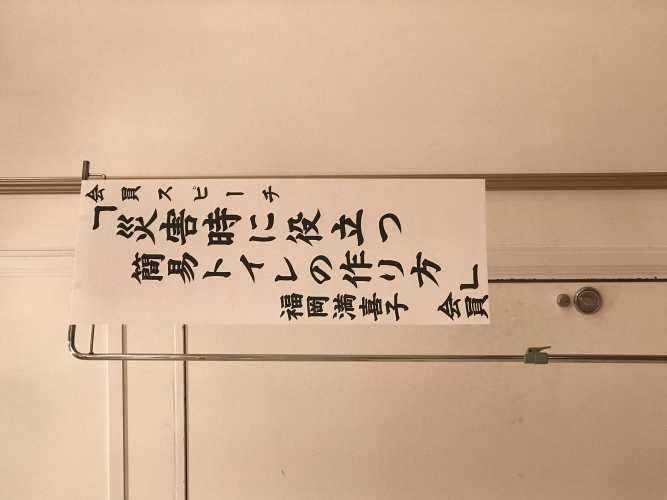 会員スピーチ
「災害時に役立つ
簡易トイレの作り方」
福岡満喜子 会員